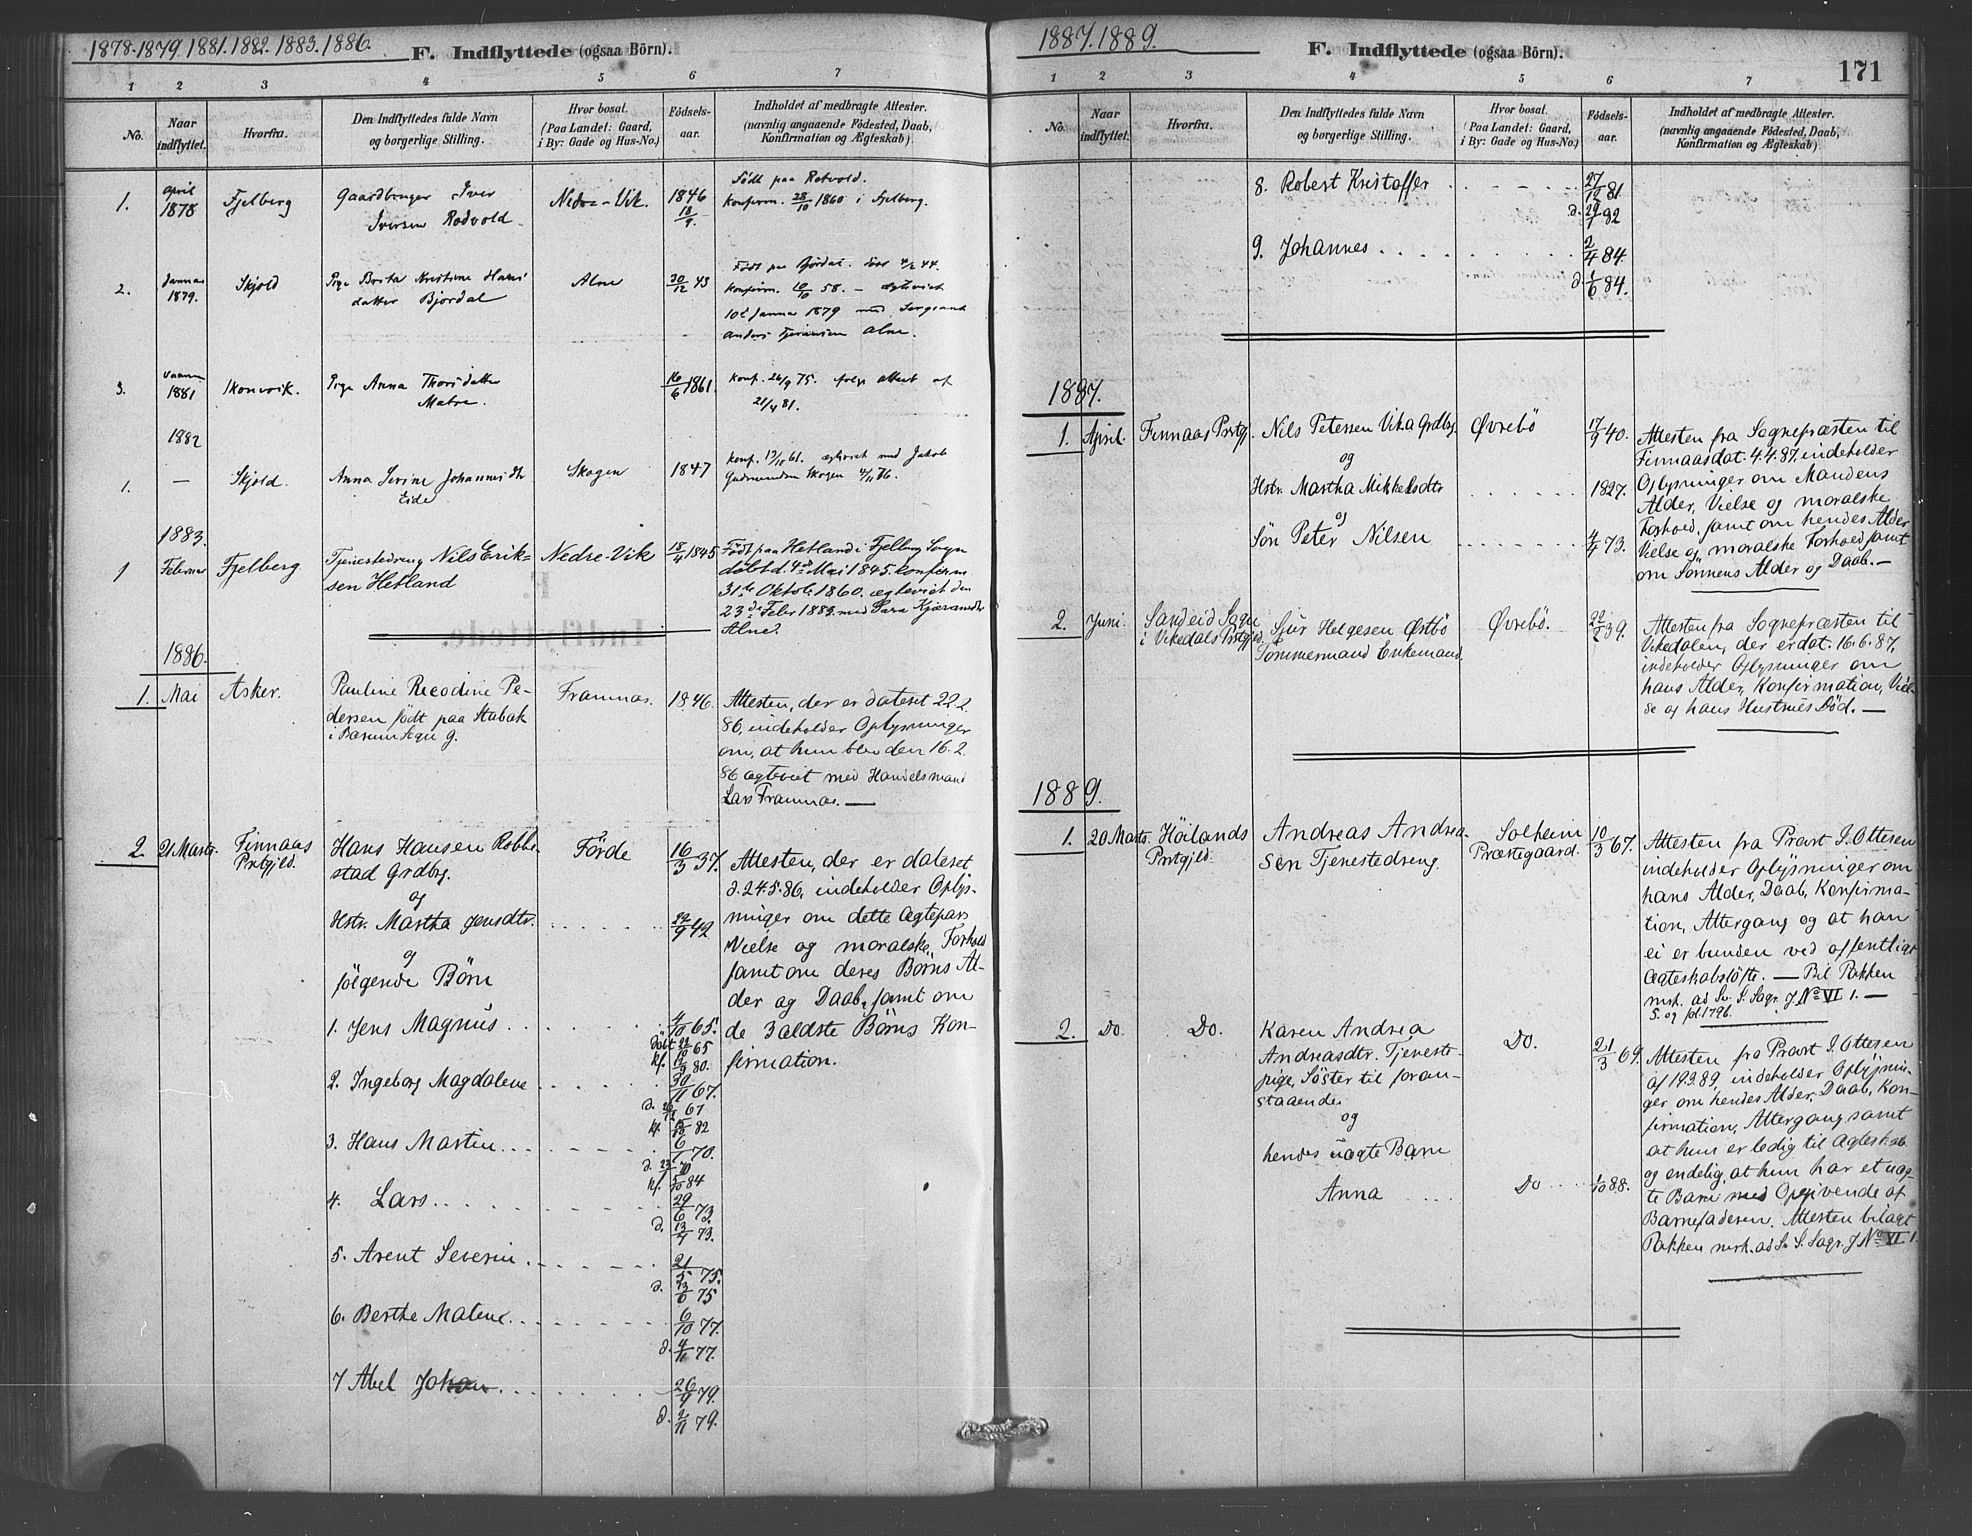 1878. 1879. 1881. 1882. 1883. 1886.
F. Indflyttede (ogsaa Börn).
1 2 3 4 5 6 7
No.
Naar indflyttet.
Hvorfra.
Den Indflyttedes fulde Navn og borgerlige Stilling.
Hvor bosat. (Paa Landet: Gaard, i By: Gade og Hus-No.)
Födsels-aar.
Indholdet af medbragte Attester. (navnlig angaaende Födested, Daab, Konfirmation og Ægteskab)
1. April 1878 Fjelberg Gaardbruger Iver
Iversen Rodvold Nedre-Vik. 1846
Födt paa Rotvold.
Konfirm. 28/10 1860 i Fjelberg.
2. Januar 1879. Skjold Pige Brita Kristine Hans
datter Bjordal Alne 30/12 43
Födt paa Bjordal.
Konfirm. 10/10 58. – ægteviet
10de Januar 1879 med Sergeant
Anders Alne.
3. 1881 Pige Anna Thorsdatter
Matre. 16/6 1861.
Konf. 26/9 75. følge Attest af
21/4 81.
1882
1. – Skjold. Anna Serine Johannesdtr
Eide Skogen 1847
Konf. 13/10 61. ægteviet med Jakob
Gudmundsen Skogen 4/11 76.
1883.
1 Februar Fjelberg Tjenestedreng Nils Erik-
sen Hetland Nedre-Vik 18/4 1845
Födt paa Hetland i Fjelberg Sogn
døbt d. 4de Mai 1845. Konfirm
31te Oktob. 1860. ægteviet den
23de Febr 1883 med Sara
Alne.
1886.
1. Mai Asker. Pauline Ricodine Pe-
dersen født paa Stabæk
i Bærum Framnæs. 1846.
Attesten, der er dateret 22.2.
86, indeholder Oplysninger
om, at hun blev den 16.2.
86 ægteviet med Handelsmand
Lars Framnæs. —
2. 21 Marts. Finnaas
Prstgjld. Hans Hansen Robbe-
stad Grdbr. Förde 16/3 37.
og
Hstr. Martha Jensdtr. 22/9 42
og
følgende Børn
Attesten, der er dateret
d. 24.5.86, indeholder Oplys-
ninger om dette Ægtepars
Vielse og moralske Forhold
samt om deres Børns Al-
der og Daab, samt om
de 3 ældste Børns Kon-
firmation.
1. Jens Magnus 4/10 65.
döbt 22/10 65
kf. 12/9 80.
2. Ingeborg Magdalene 30/11 67.
d. 26/12 67
kf. 15/10 82
3. Hans Martin 6/1 70.
d. 23/1 70
kf. 5/10 84
4. Lars 29/6 73
d. 13/7 73.
5. Arent Severin 21/5 75.
d. 13/6 75
6. Berthe Malene 6/10 77.
d. 4/11 77.
7 Abel Johan 26/9 79.
d. 2/11 79.
1887. 1889.
F. Indflyttede (ogsaa Börn).
171
1 2 3 4 5 6 7
No.
Naar indflyttet.
Hvorfra.
Den Indflyttedes fulde Navn og borgerlige Stilling.
Hvor bosat. (Paa Landet: Gaard, i By: Gade og Hus-No.)
Födsels-aar.
Indholdet af medbragte Attester. (navnlig angaaende Födested, Daab, Konfirmation og Ægteskab)
8. Robert Kristoffer 27/12 81
d. 29/1 82
9. Johannes 2/4 84.
d. 1/6 84.
1887.
1. April. Finnaas Prstgj. Nils Petersen Vika Grdbr. Øvrebö 17/9 40.
og
Hstr. Martha Mikkelsdtr 1827.
og
Søn Peter Nilsen 4/4 73.
Attesten fra Sognepræsten til
Finnaas dat. 4.4.87, indeholder
Oplysninger om Mandens
Alder, Vielse og moralske
Forhold, samt om hendes Alder
Vielse og moralske Forhold samt
om Sønnens Alder og Daab. —
2. Juni. Sandeid Sogn
i Vikedals Prstgjld. Sjur Helgesen Østbö
Tømmermand Enkemand. Øvrebö. 22/2 39.
Attesten fra Sognepræsten til
Vikedalen, der er dat. 16.6.87,
indeholder Oplysninger om
hans Alder, Konfirmation, Viel-
se og hans Hustrues Død. —
1889.
1. 20 Marts. Höilands
Prstgjld. Andreas Andrea-
sen Tjenestedreng. Solheim
Præstegaard. 10/3 67.
Attesten fra Provst J. Ottesen
indeholder Oplysninger om
hans Alder, Daab, Konfirma-
tion, Altergang og at han
ei er bunden ved offentligt
Ægteskabsløfte. — Bil. Pakken
mrk. ad Sv. S. Sagr. J No VI 1. —
S. og fol. 1796.
2. Do. Do. Karen Andrea
Andreasdtr. Tjeneste-
pige, Søster til foran-
staaende
og
hendes uægte Barn
Anna Do. 21/3 69.
Do 1/10 88.
Attesten fra Provst J. Ottesen
af 19.3.89, indeholder Oplysnin-
ger om hendes Alder, Daab, Kon-
firmation, Altergang samt
at hun er ledig til Ægteskab
og endelig, at hun har et uæg-
te Barn med Opgivende af
Barnefaderen. Attesten bilagt
Pakken mrk. ad Sv. S. Sagr. J No VI. 1.